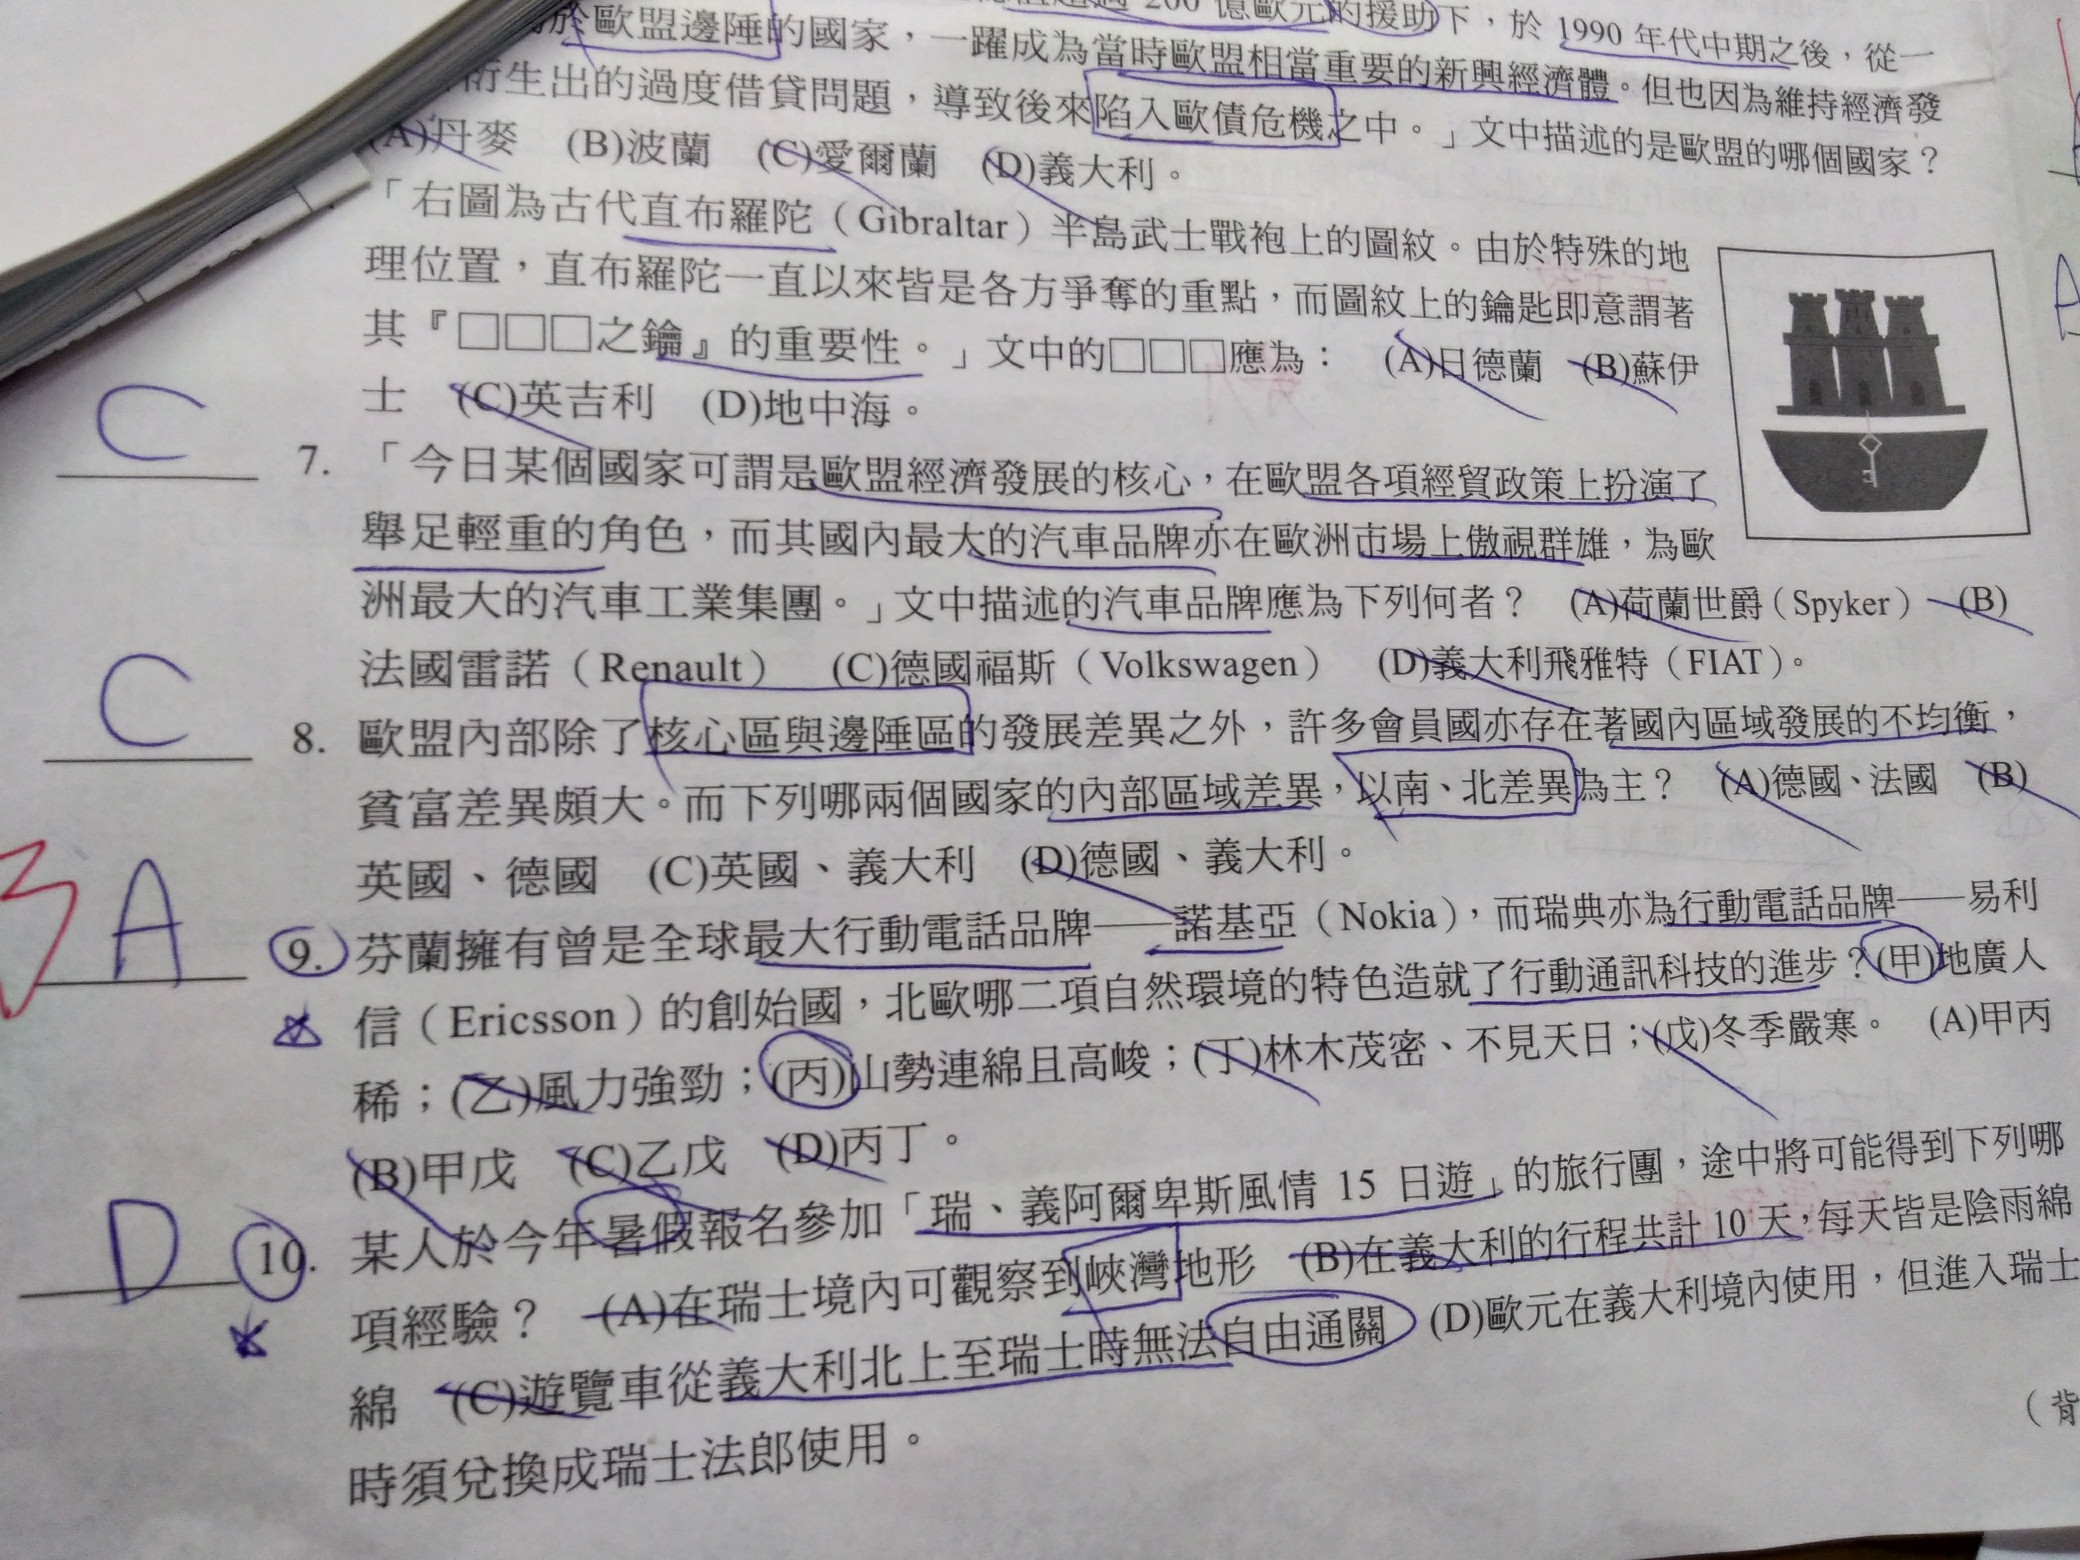 200 億歐元的援助下，於 1990 年代中期之後，從一
於歐盟邊陲的國家，一躍成為當時歐盟相當重要的新興經濟體。但也因為維持經濟發
衍生出的過度借貸問題，導致後來陷入歐債危機之中。」文中描述的是歐盟的哪個國家？
(A)丹麥 (B)波蘭 (C)愛爾蘭 (D)義大利。
「右圖為古代直布羅陀（Gibraltar）半島武士戰袍上的圖紋。由於特殊的地
理位置，直布羅陀一直以來皆是各方爭奪的重點，而圖紋上的鑰匙即意謂著
其『□□□之鑰』的重要性。」文中的□□□應為： (A)日德蘭 (B)蘇伊
士 (C)英吉利 (D)地中海。
C 7. 「今日某個國家可謂是歐盟經濟發展的核心，在歐盟各項經貿政策上扮演了
舉足輕重的角色，而其國內最大的汽車品牌亦在歐洲市場上傲視群雄，為歐
洲最大的汽車工業集團。」文中描述的汽車品牌應為下列何者？ (A)荷蘭世爵（Spyker） (B)
法國雷諾（Renault） (C)德國福斯（Volkswagen） (D)義大利飛雅特（FIAT）。
C 8. 歐盟內部除了核心區與邊陲區的發展差異之外，許多會員國亦存在著國內區域發展的不均衡，
貧富差異頗大。而下列哪兩個國家的內部區域差異，以南、北差異為主？ (A)德國、法國 (B)
英國、德國 (C)英國、義大利 (D)德國、義大利。
A 9. 芬蘭擁有曾是全球最大行動電話品牌——諾基亞（Nokia），而瑞典亦為行動電話品牌——易利
信（Ericsson）的創始國，北歐哪二項自然環境的特色造就了行動通訊科技的進步？(甲)地廣人
稀；(乙)風力強勁；(丙)山勢連綿且高峻；(丁)林木茂密、不見天日；(戊)冬季嚴寒。 (A)甲丙
(B)甲戊 (C)乙戊 (D)丙丁。
D 10. 某人於今年暑假報名參加「瑞、義阿爾卑斯風情 15 日遊」的旅行團，途中將可能得到下列哪
項經驗？ (A)在瑞士境內可觀察到峽灣地形 (B)在義大利的行程共計 10 天，每天皆是陰雨綿
綿 (C)遊覽車從義大利北上至瑞士時無法自由通關 (D)歐元在義大利境內使用，但進入瑞士
時須兌換成瑞士法郎使用。
（背